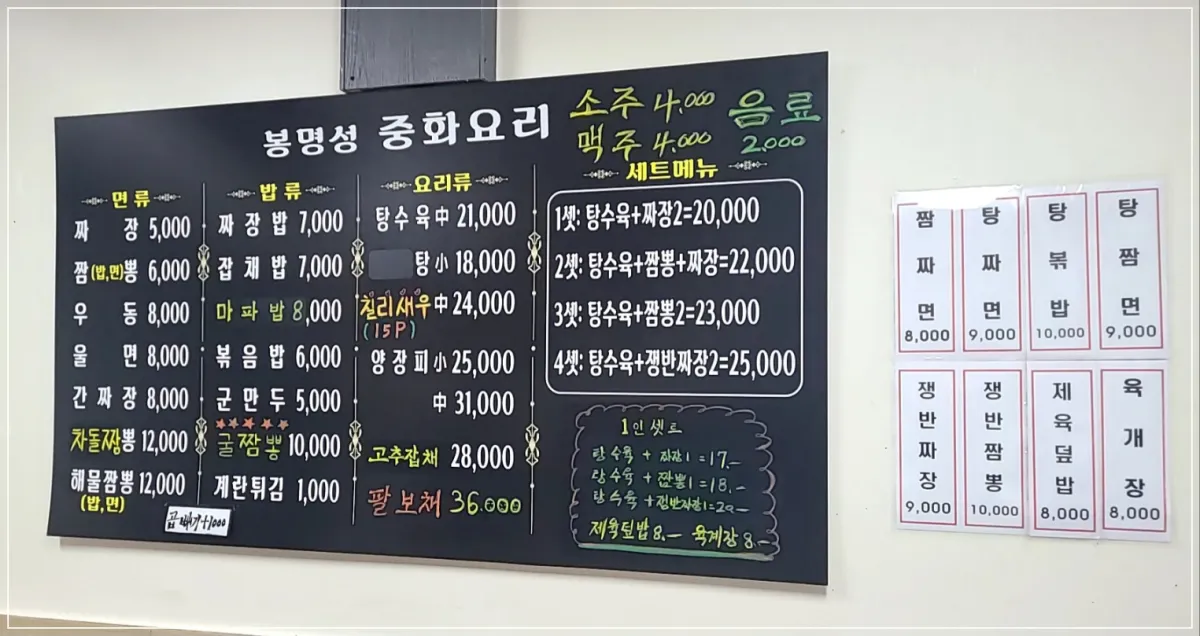 봉명성 중화요리
소주 4,000
맥주 4,000
음료
2,000
면류
짜장 5,000
짬(밥,면)뽕 6,000
우동 8,000
울면 8,000
간짜장 8,000
차돌짬뽕 12,000
해물짬뽕 12,000
(밥,면)
곱빼기+1000
밥류
짜장밥 7,000
잡채밥 7,000
마파밥 8,000
볶음밥 6,000
군만두 5,000
굴짬뽕 10,000
계란튀김 1,000
요리류
탕수육 中 21,000
탕 小 18,000
칠리새우 中 24,000
(15P)
양장피 小 25,000
中 31,000
고추잡채 28,000
팔보채 36.000
세트메뉴
1셋: 탕수육+짜장2=20,000
2셋: 탕수육+짬뽕+짜장=22,000
3셋: 탕수육+짬뽕2=23,000
4셋: 탕수육+쟁반짜장2=25,000
1인셋트
탕수육 + 짜장1 =17.-
탕수육 + 짬뽕1 =18.-
탕수육 +쟁반짜장1=20-
제육덮밥 8.- 육계장 8.-
짬짜면
8,000
탕짜면
9,000
탕볶밥
10,000
탕짬면
9,000
쟁반짜장
9,000
쟁반짬뽕
10,000
제육덮밥
8,000
육개장
8,000